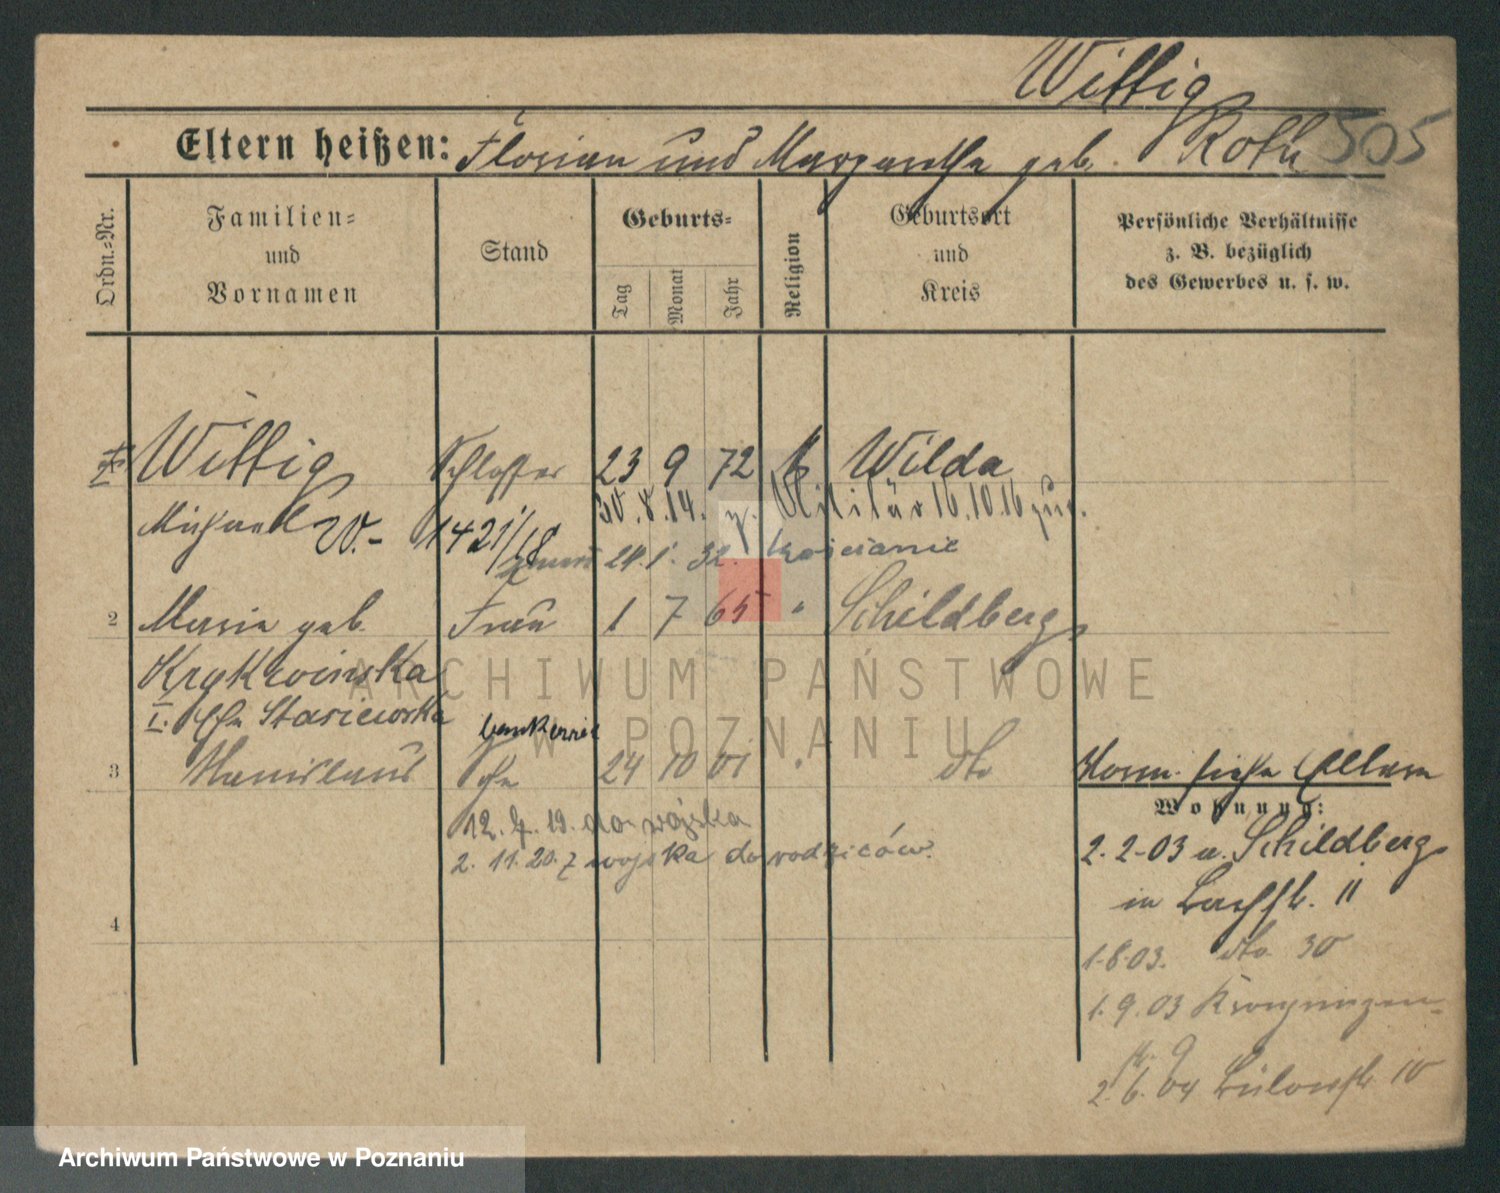 Wittig
Eltern heißen: Florian und Margarethe geb. Roth 505
Ordn.-Nr.
Familien-
und
Vornamen
Stand
Geburts-
Tag
Monat
Jahr
Religion
Geburtsort
und
Kreis
Persönliche Verhältnisse
z. B. bezüglich
des Gewerbes u. s. w.
Wittig Schlosser 23 9 72 k Wilda
30.8.14. z. Militär 16.10.16 zur.
Michael W.- 1421/18
zmarł 24.1.32. Kościanie
2 Maria geb. Frau 1 7 65 " Schildberg
Krykwinska
I. Ehe Stasiewska
3 Stanislaus 24 10 01 " dto
12.4.19. do wojska
2.11.20. z wojska do rodziców.
4
Korm. siehe
Wohnung:
2.2.03 a. Schildberg
in Bachstr. 11
1.8.03. dto 30
1.9.03 Kronprinzen-
str. 9
2.6.04 Bülowstr. 10
ARCHIWUM PAŃSTWOWE
W POZNANIU
Archiwum Państwowe w Poznaniu